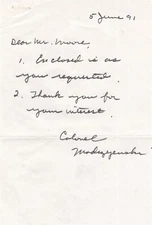 5 June 91
Dear Mr. Moore,
1. Enclosed is as
you requested.
2. Thank you for
your interest.
Colonel